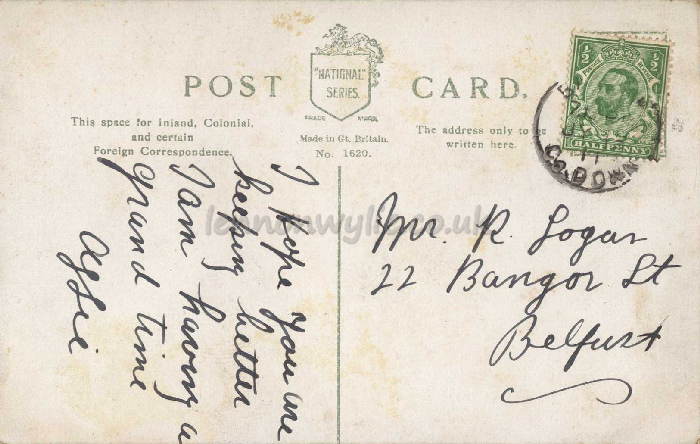 POST CARD.
"NATIONAL"
SERIES.
TRADE MARK.
This space for Inland, Colonial,
and certain
Foreign Correspondence.
Made in Gt. Britain.
No. 1620.
The address only to be
written here.
1/2 1/2
HALFPENNY
CO. DOWN
I hope you are
keeping better
I am having a
grand time
Aggie
Mr. R. Logan
22 Bangor St
Belfast
lennonwylie.co.uk